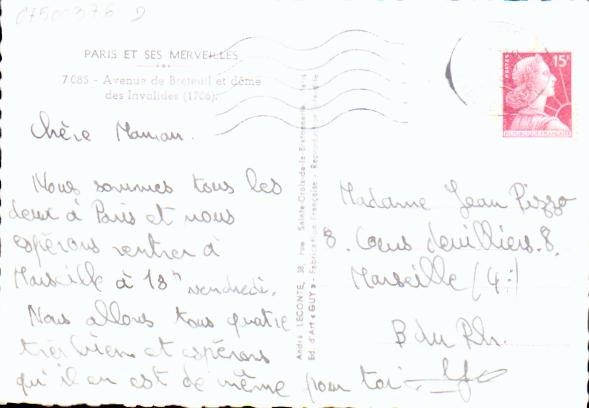 CA500376 D
PARIS ET SES MERVEILLES
7085 - Avenue de Breteuil et dôme
des Invalides (1706).
15F
POSTES
REPUBLIQUE FRANÇAISE
Chère Maman.
Nous sommes tous les
deux à Paris et nous
espérons rentrer à
Marseille à 18h vendredi.
Nous allons tous quatre
très bien et espérons
qu'il en est de même pour toi.
André LECONTE, 38, rue Sainte-Croix-de-la-Bretonnerie, Paris
Ed. d'Art « GUY » - Fabrication Française - Reproduction
Madame Jean Pizzo
8. Cours 8.
Marseille (4e)
B du Rh.